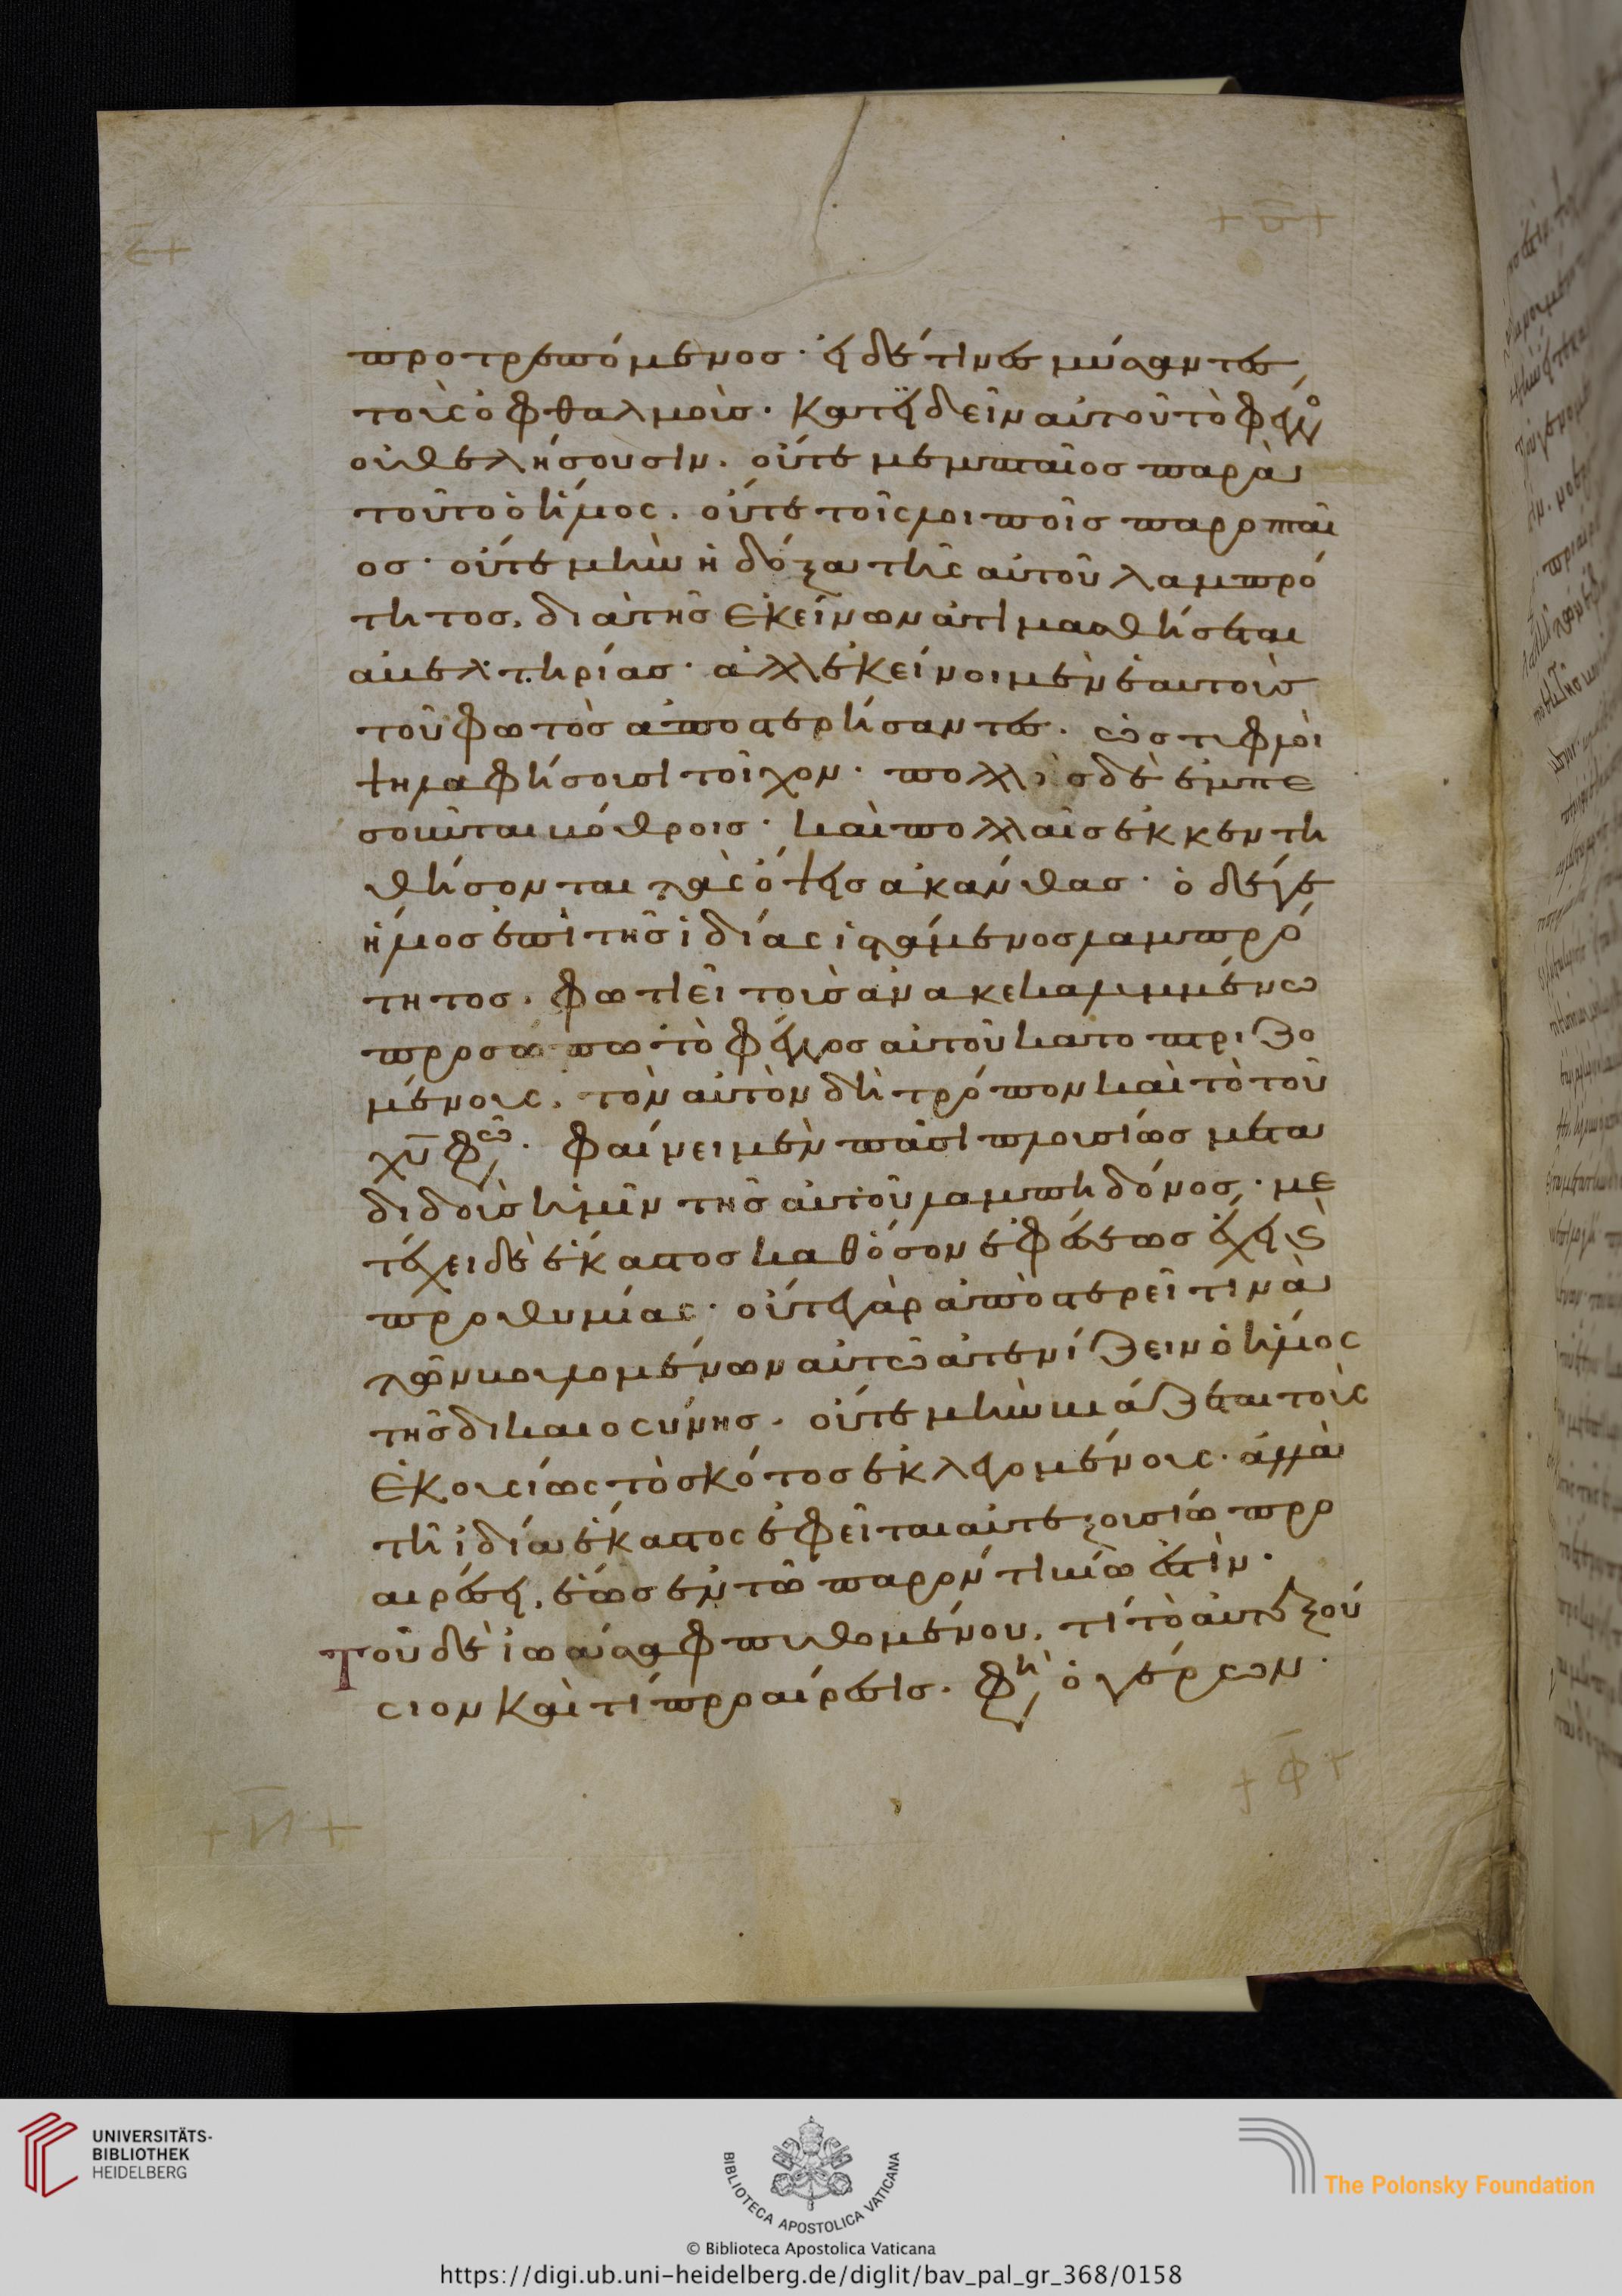 προτρεπόμενος· εἰ δέ τινες μύσαντες
τοὺς ὀφθαλμοὺς· κατϊδεῖν αὐτοῦ τὸ φέγγο
οὐ θελήσουσιν. οὔτε μεμπταῖος παρὰ
τοῦτο ὁ ἥλιος. οὔτε τοῖς λοιποῖς παροπταῖ
ος· οὔτε μὴν ἡ δόξα τῆς αὐτοῦ λαμπρό
τητος, διὰ τῆς ἐκείνων ἀτιμασθήσεται
ἀβελτηρίας· ἀλλ' ἐκεῖνοι μὲν ἑαυτοὺς
τοῦ φωτὸς ἀποστερήσαντες. ὡς τυφλοὶ
ψηλαφήσουσι τοῖχον· πολλοῖς δὲ ἐμπε
σοῦνται βόθροις· καὶ πολλαῖς ἐκκεντη
θήσονται τὰς ὄψεις ἀκάνθαις· ὁ δὲ
ἥλιος ἐπὶ τῆς ἰδίας ἱστάμενος λαμπρό
τητος. φωτιεῖ τοὺς ἀνακεκαλυμμένω
προσώπω τὸ φέγγος αὐτοῦ κατοπτριζο
μένους. τὸν αὐτὸν δὴ τρόπον καὶ τὸ τοῦ
χυ φῶ. φαίνει μὲν πᾶσι πλουσίως μετα
διδοὺς ἡμῖν τῆς αὐτοῦ λαμπηδόνος· με
τέχει δὲ ἕκαστος καθόσον ἐφέσεως ἔχει ϗ
προθυμίας· οὔτε γὰρ ἀποστερεῖ τινὰ
τῶν βουλομένων αὐτῶ ἀτενίζειν ὁ ἥλιος
τῆς δικαιοσύνης. οὔτε μὴν βιάζεται τοὺς
ἑκουσίως τὸ σκότος ἐκλεγομένους· ἀλλὰ
τῆ ἰδίω ἕκαστος ἐφεῖται αὐτεξουσίω προ
αιρέσει, ἕως ἐν τῶ παρόντι βίω ἐστὶν·
Τοῦ δὲ ἰωάσαφ πυθομένου. τί τὸ αὐτεξού
σιον καὶ τί προαίρεσις. φη ὁ γέρων·
UNIVERSITÄTS-
BIBLIOTHEK
HEIDELBERG
BIBLIOTECA APOSTOLICA VATICANA
The Polonsky Foundation
© Biblioteca Apostolica Vaticana
https://digi.ub.uni-heidelberg.de/diglit/bav_pal_gr_368/0158